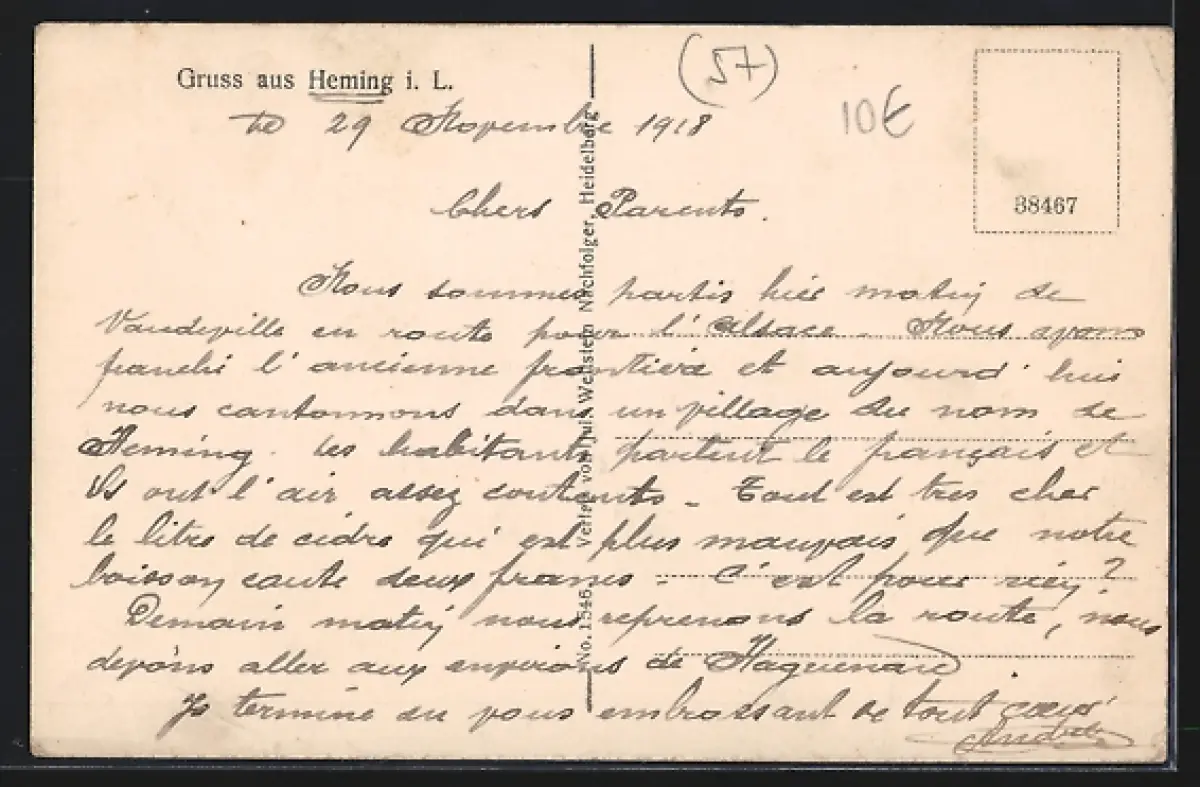 Gruss aus Heming i. L.
(57)
10€
38467
Le 29 Novembre 1918
Chers Parents.
Nous sommes partis hier matin de
Vaudeville en route pour l'Alsace. Nous avons
franchi l'ancienne frontière et aujourd'hui
nous cantonnons dans un village du nom de
Heming. Les habitants partent le français et
ils ont l'air assez contents - Tout est tres cher
le litre de cidre qui est plus mauvais que notre
boisson coute deux francs - C'est pour rien?
Demain matin nous reprenons la route, nous
devons aller aux environs de Haguenau
Je termine en vous embrassant de tout coeur
No. 1546. Verlag von Jul. Wettstein Nachfolger, Heidelberg